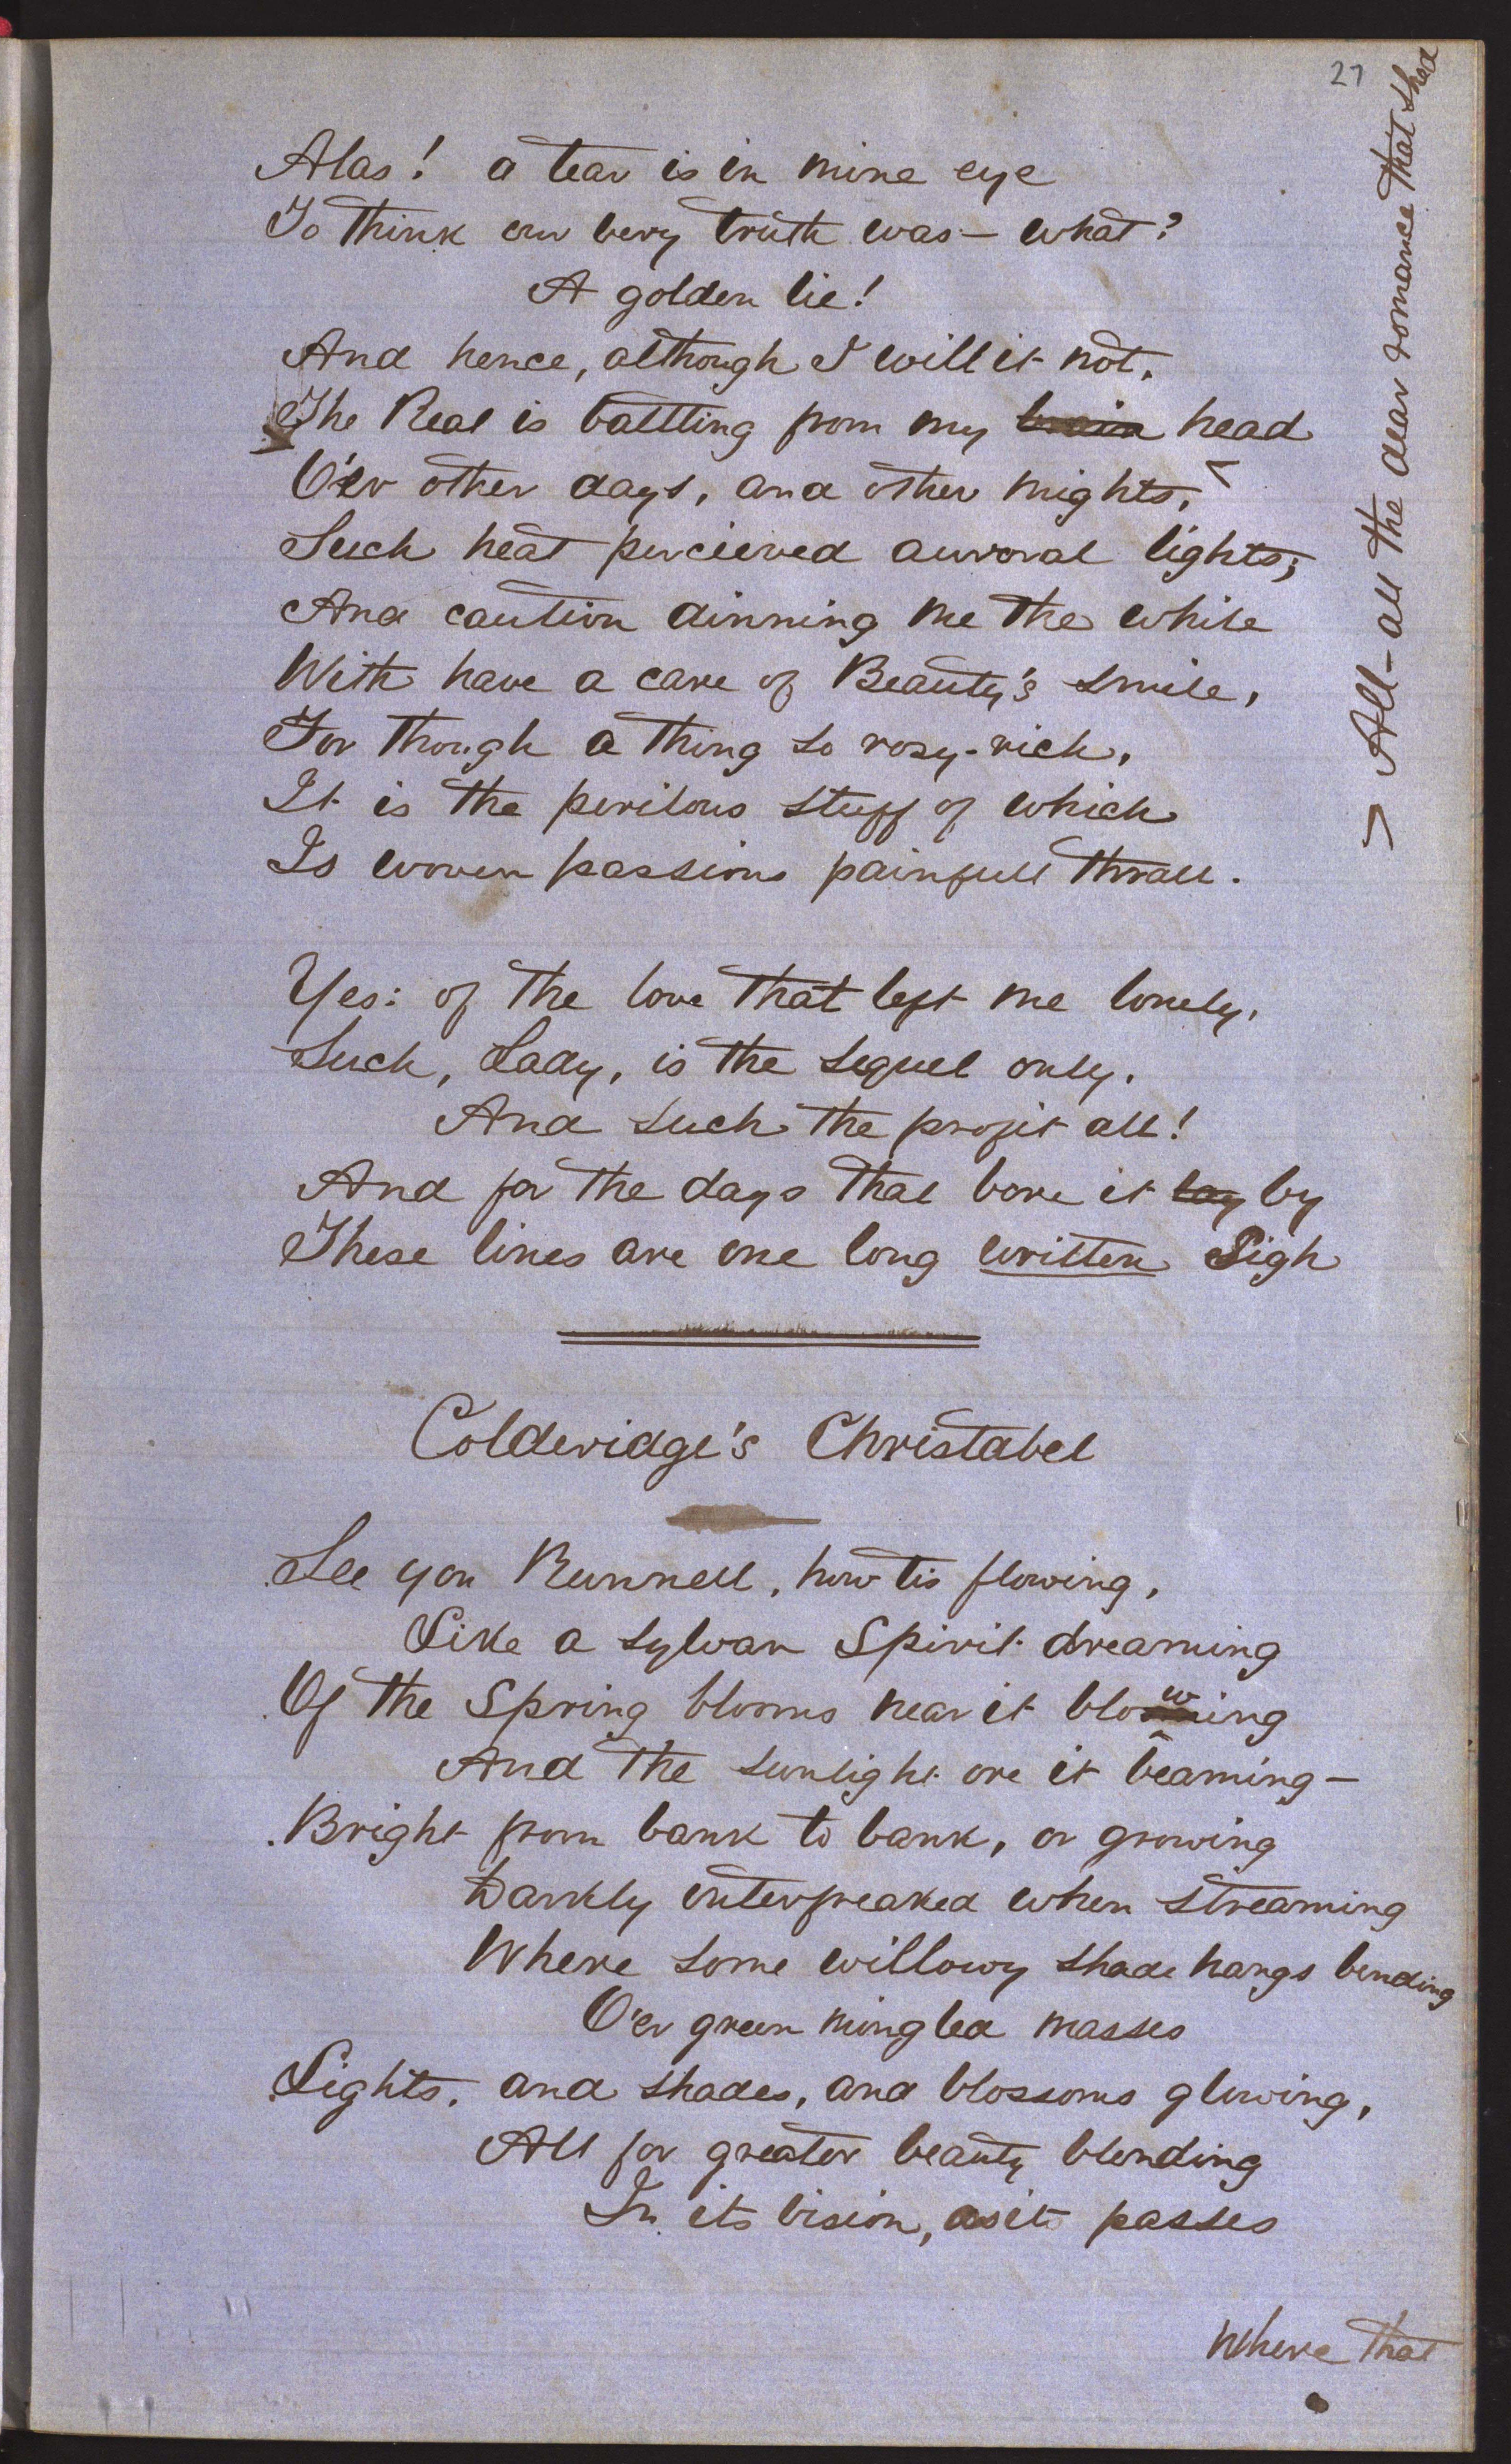 27
Alas! a tear is in mine eye
To think our very truth was — what?
A golden lie!
And hence, although I will it not,
The Real is battling from my brain head
All — all the dear romance that shed
O'er other days, and other nights,
Such heat percieved auroral lights;
And caution dinning me the while
With have a care of Beauty's smile,
For though a thing so rosy-rich,
It is the perilous stuff of which
Is woven passions painfull thrall.
Yes: of the love that left me lonely,
Such, Lady, is the sequel only.
And such the profit all!
And for the days that bore it by
These lines are one long written Sigh
Colderidge's Christabel
See yon Runnell, how tis flowing,
Like a sylvan Spirit dreaming
Of the Spring blooms near it blowing
And the sunlight ore it beaming —
Bright from bank to bank, or growing
Darkly interfreaked when streaming
Where some willowy shade hangs bending
O'er green mingled masses
Lights, and shades, and blossoms glowing,
All for greater beauty blending
In its vision, as it passes
Where that